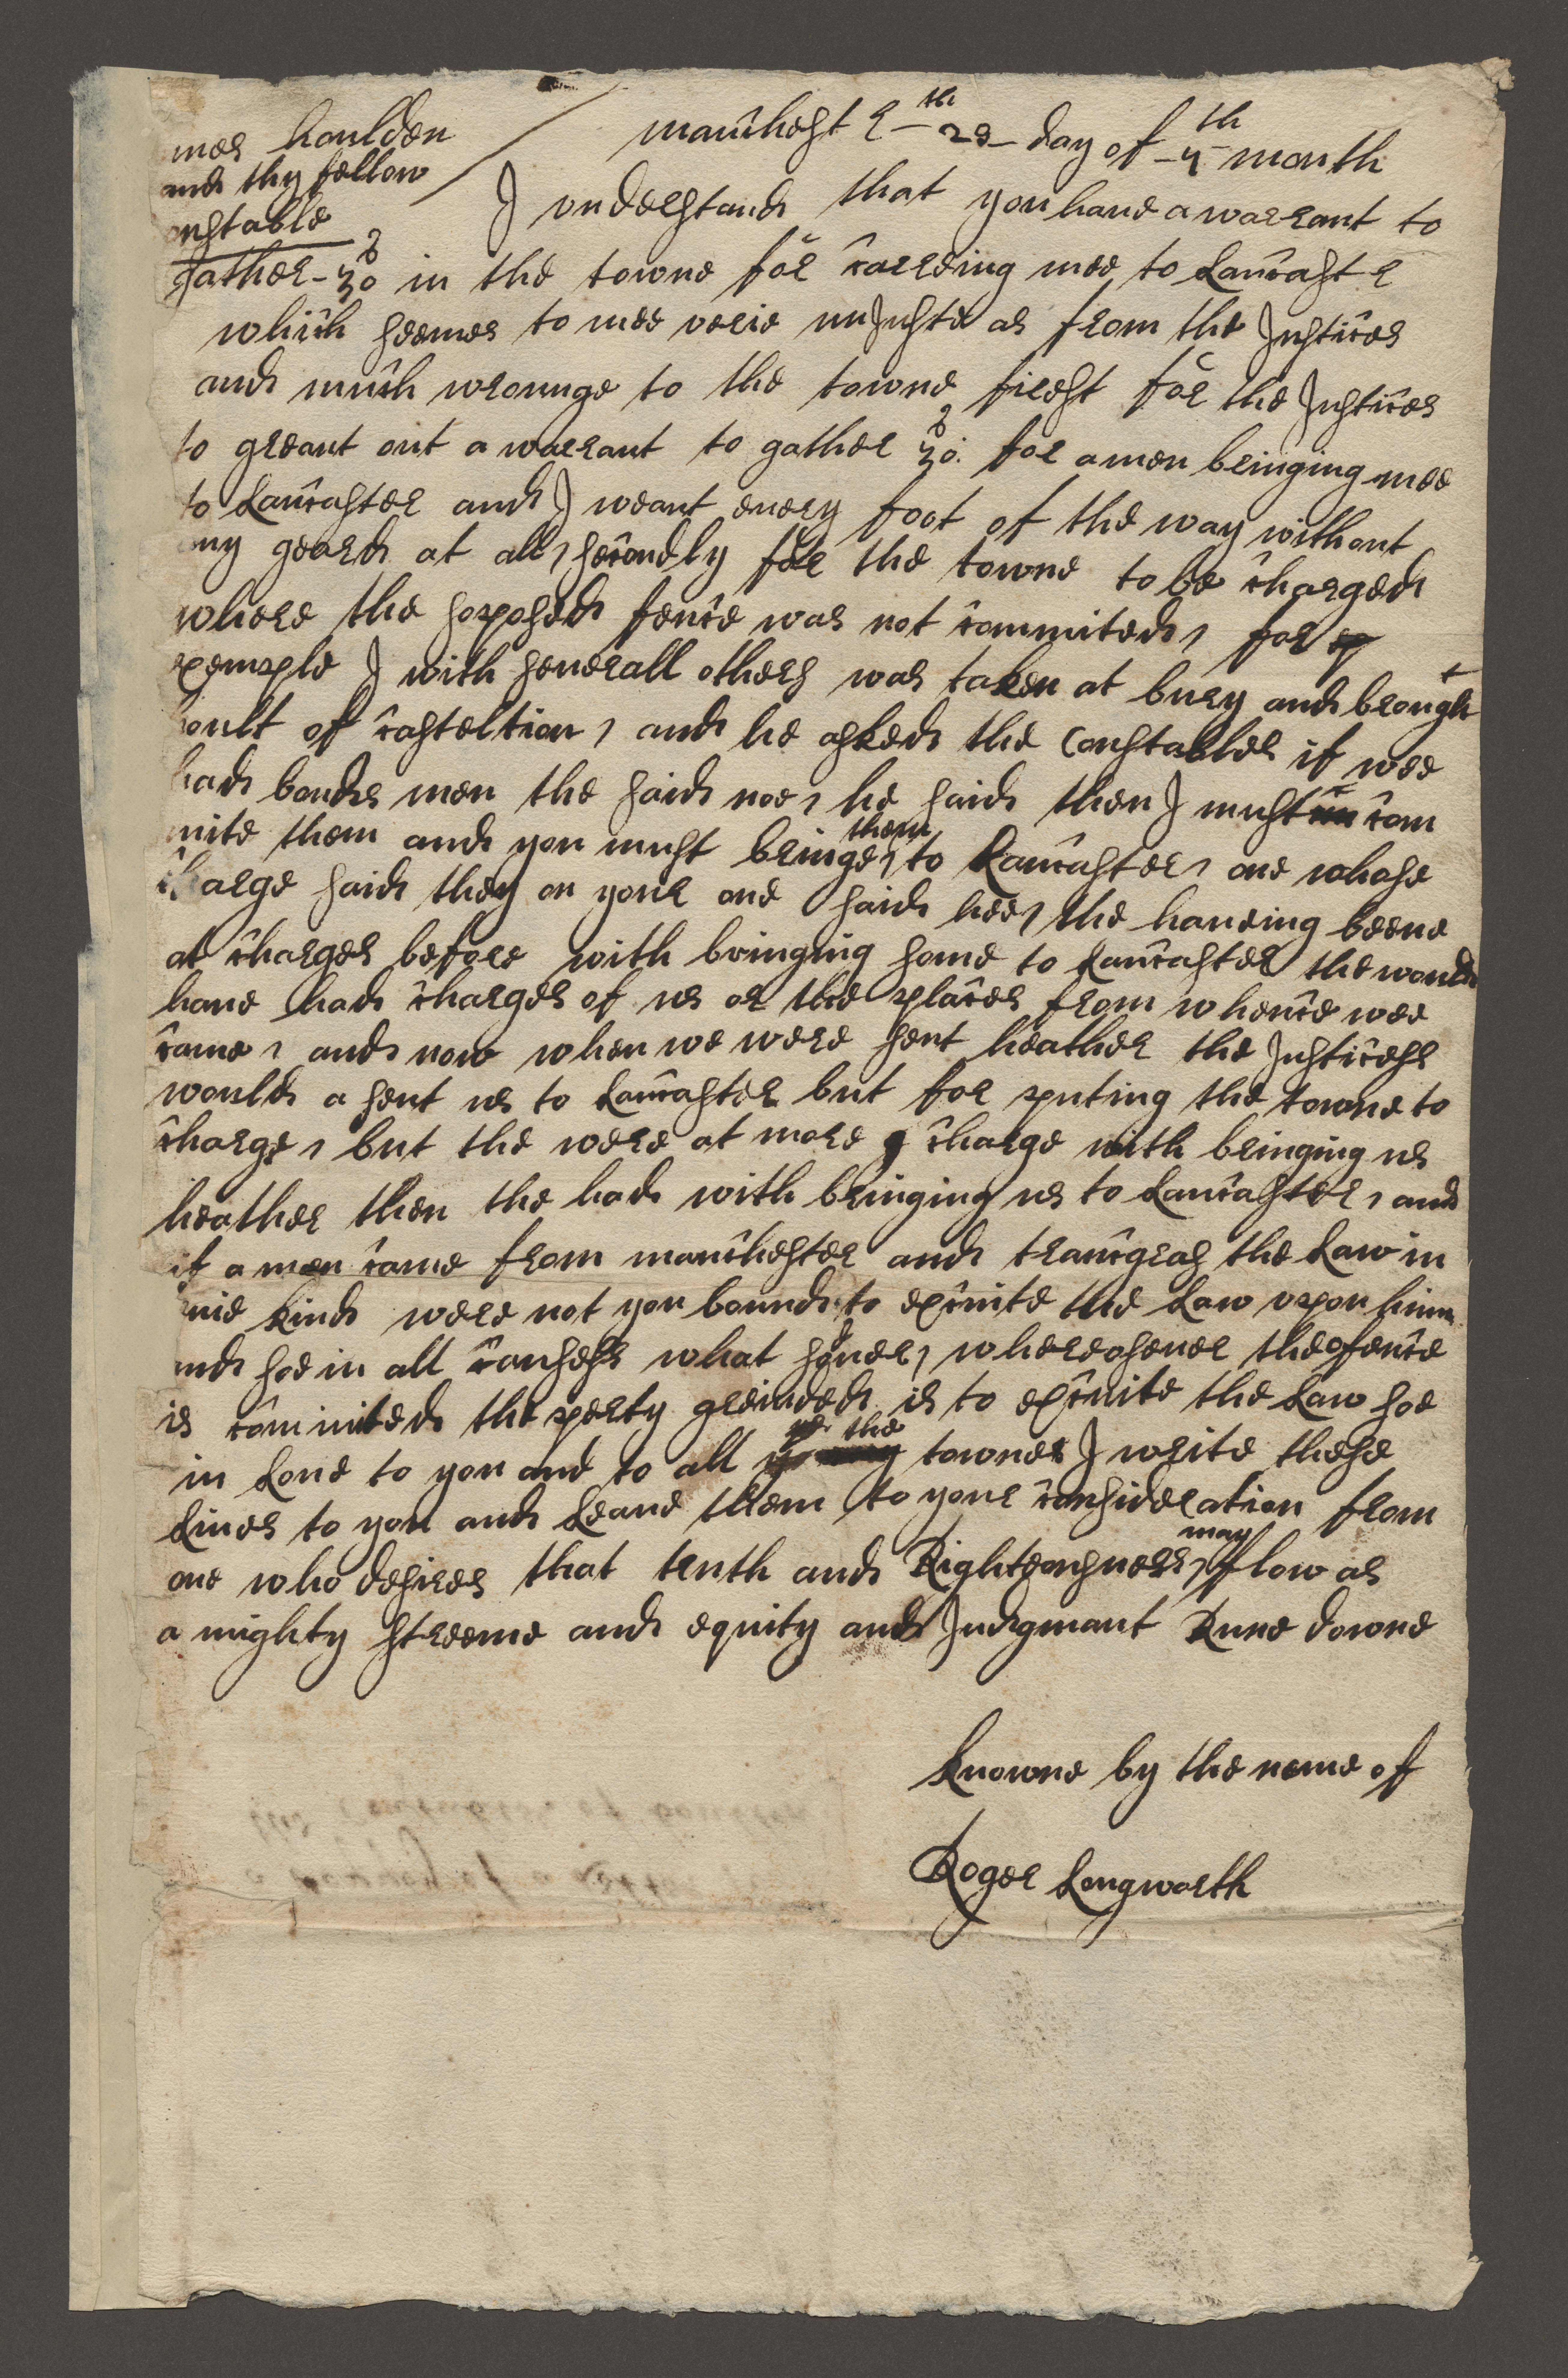 mes houlden
and thy fellow
onstable
manchestr 23th day of 4th month
I understand that you have a warrant to
gather 30s in the towne for carreing mee to Lancastr
which seemes to mee verie unjuste as from the Justices
and much wrounge to the towne first for the Justices
to greant out a warrant to gather 30s. for a men bringing mee
to Lancaster and I weant every foot of the way without
any geard at all, secondly for the towne to be charged
where the soposed fence was not commited, for
exemple I with severall others was taken at bury and brought
hoult of casteltion, and he asked the Constables if wee
had bondes men the said noe, he said then I must com
mite them and you must bringe them to Lancaster, one whose
charge said they on your one said hee, the haveing beene
at charges before with bringing some to Lancaster the would
have had charges of us or the places from whence wee
came, and now when we were sent heather the Justicess
would a sent us to Lancaster but for puting the towne to
charge, but the were at more charge with bringing us
heather then the had with bringing us to Lancaster, and
if a men came from manchester and trancgras the Law in
anie kind were not you bound to excute the Law upon him
and soe in all causess what soever, whereasever the ofence
is commited the perty greived is to excute the Law soe
in Love to you and to all the townes I write these
Lines to you and Leave them to your consideration from
one who desires that truth and Righteousness may flow as
a mighty streeme and equity and Judgmant Rune downe
Knowne by the neme of
Roger Longworth